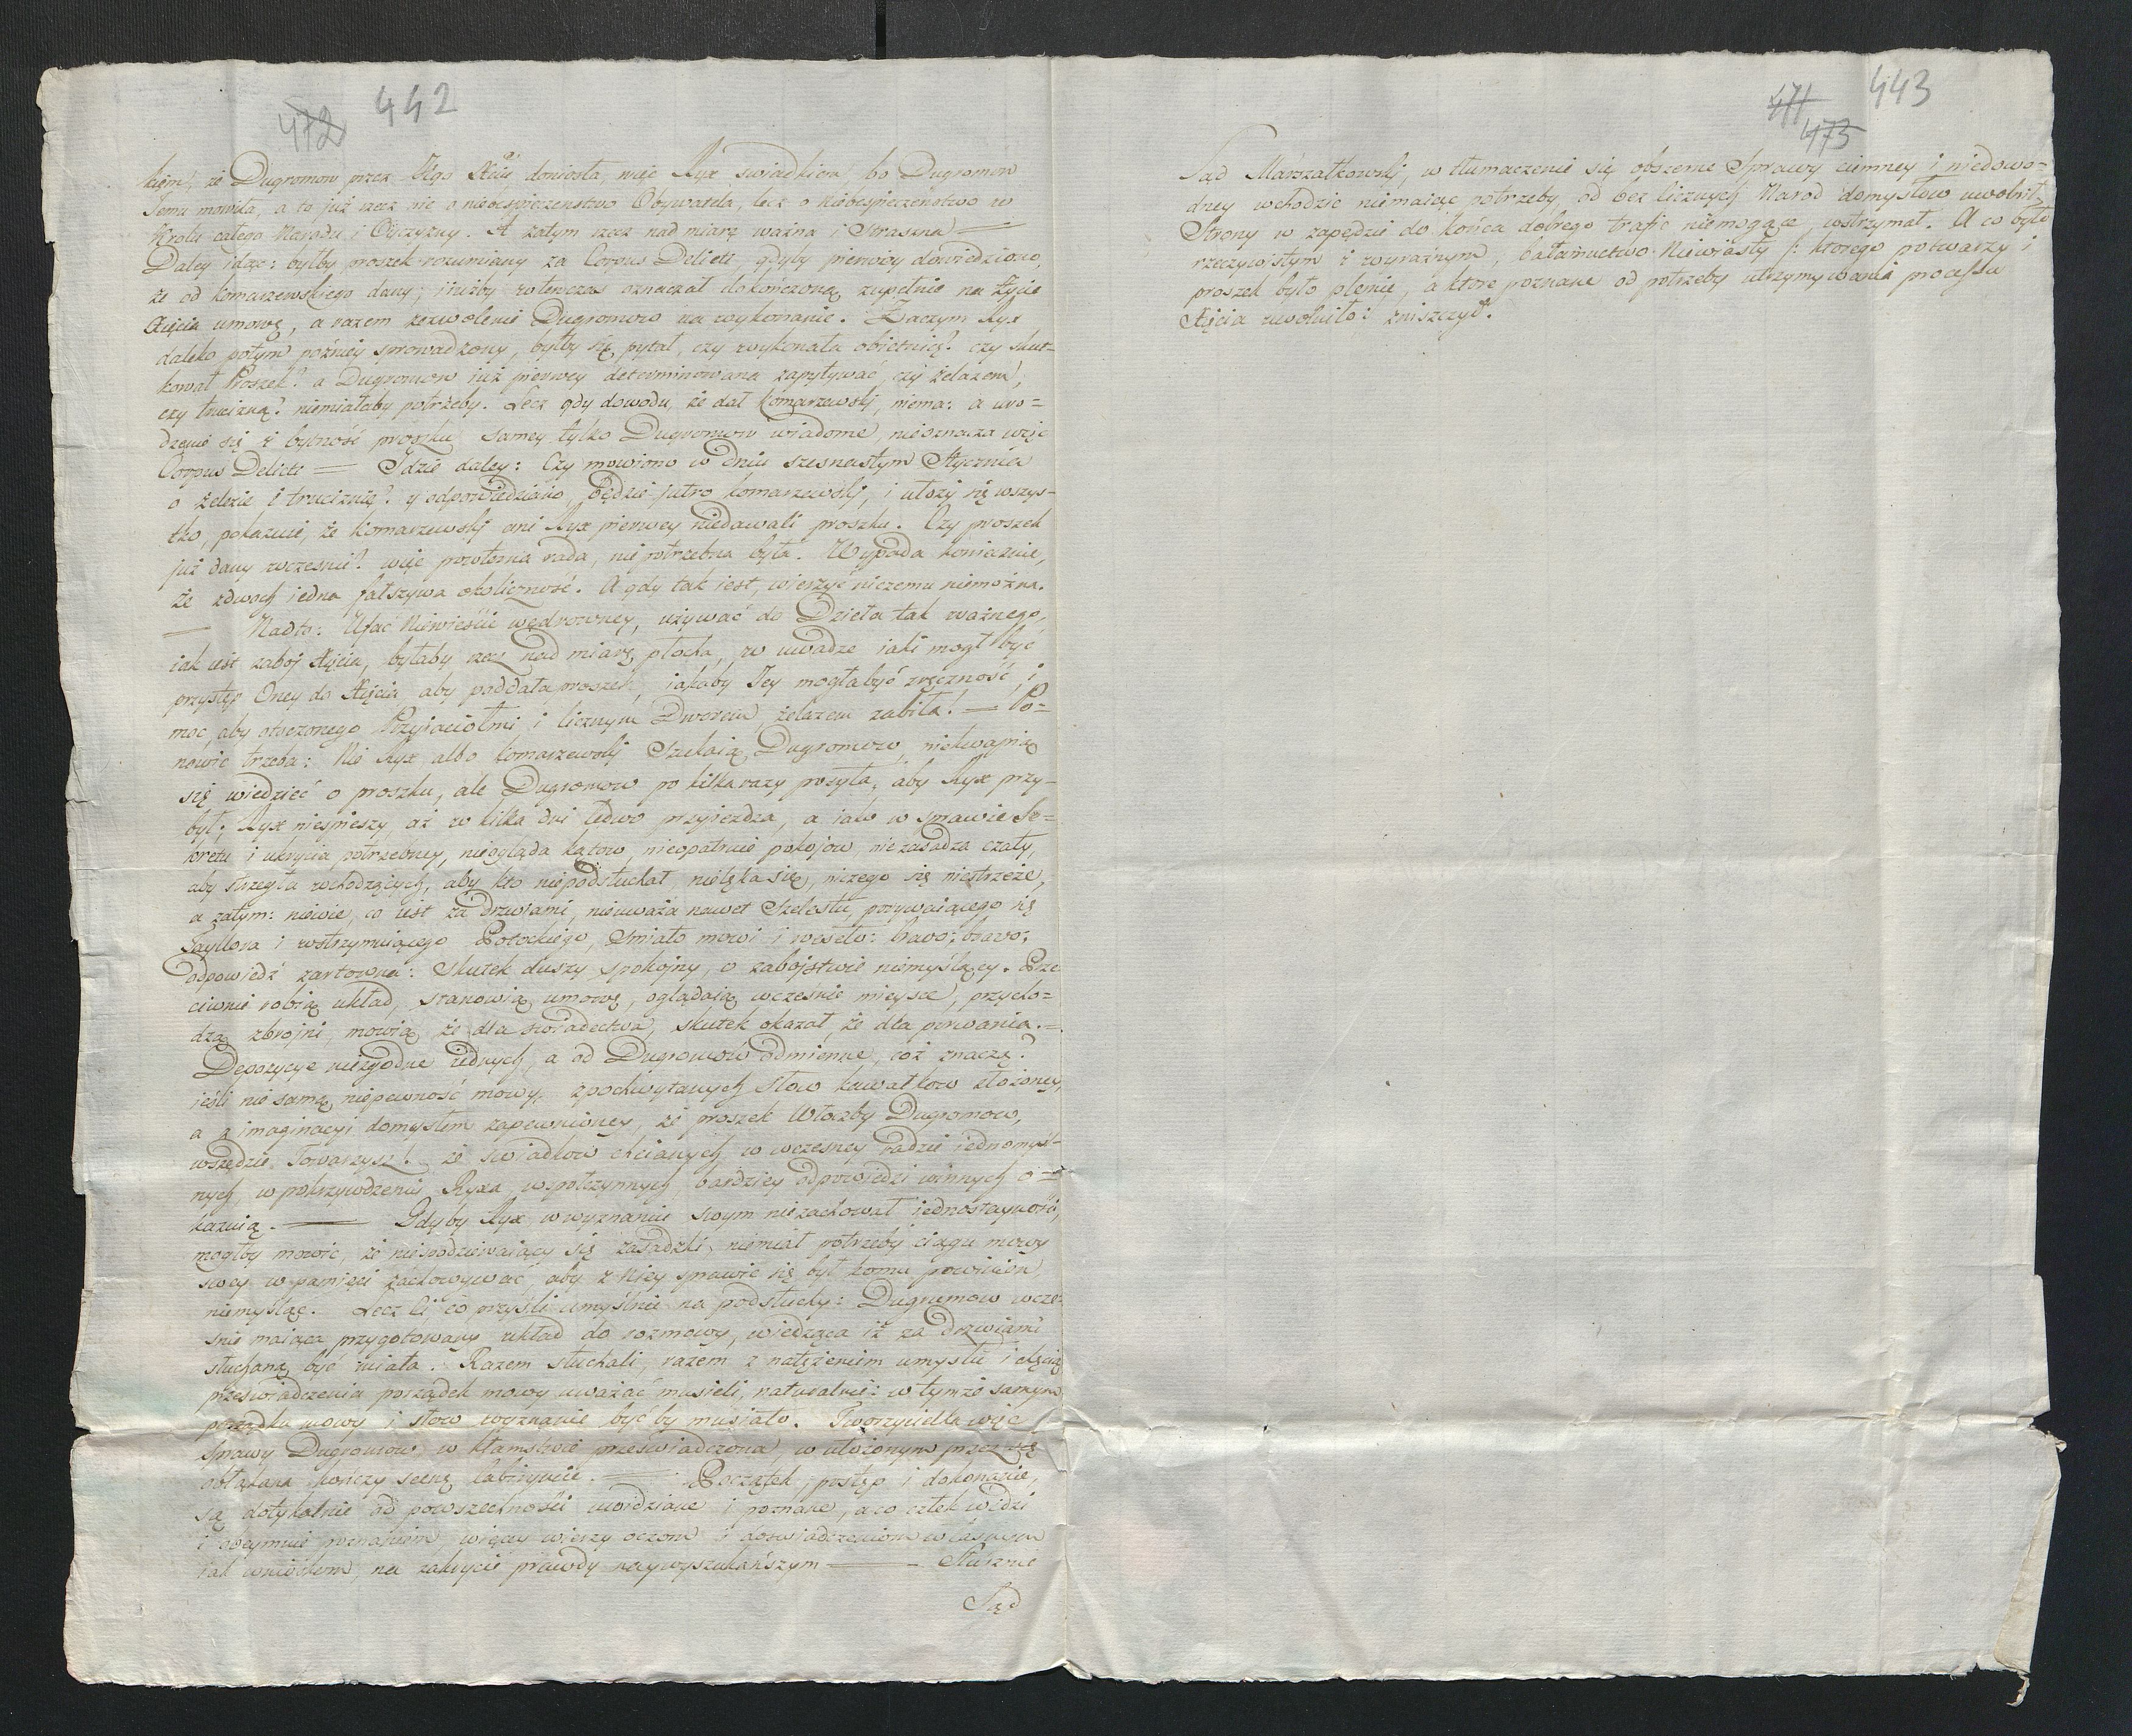 472 442
kiem, że Dugromow przez Jego Xcia doniosła, więc Ryx swiadkiem, bo Dugromow
Jemu mowiła, a to już rzecz nie o niebespieczenstwo Obywatela, lecz o niebespieczeństwo w
Krolu całego Narodu i Oyczyzny. A zatym rzecz nad miarę ważna i Straszna =
Daley idąc: byłby proszek rozumiany za Corpus Delicti, gdyby pierwey dowiedziono,
że od Komarzewskiego dany; iużby wtenczas oznaczał dokończoną zupełnie na życie
Xięcia umowę, a razem zezwolenie Dugromow na wykonanie. Zaczym Ryx
daleko potym poźniey sprowadzony, byłby się pytał, czy wykonała obietnicę? czy skut-
kował Proszek? a Dugromow iuż pierwey determinowana zapytywać, czy żelazem,
czy trucizną? niemiałaby potrzeby. Lecz gdy dowodu, że dał Komarzewskj, niema: a uro=
dzenie się i bytność proszku samey tylko Dugromow wiadome, nieoznacza więc
Corpus Delicti = Idzie daley: Czy mowiono w dniu szesnastym Stycznia
o żelezie i truciznie? y odpowiedziano, będzie jutro Komarzewskj, i ułoży się wszys-
tko, pokazuie, że Komarzewskj ani Ryx pierwey niedawali proszku. Czy proszek
już dany wczesnie? więc powtorna rada, nie potrzebna była. Wypada koniecznie,
że zdwoch iedna fałszywa okoliczność. A gdy tak iest, wierzyć niczemu niemożna.
— Nadto: Ufać Niewieście wędrowney, używać do Dzieła tak ważnego,
iak iest zaboj Xięcia, byłaby rzecz nad miarę płocha, w uwadze iaki mogł być
przystęp Oney do Xięcia aby poddała proszek, iakaby Jey mogła być zręczność, i
moc, aby otoczonego Przyiaciołmi i licznym Dworem, żelazem zabiła! — Po=
nowić trzeba: Nie Ryx albo Komarzewskj Szukaią Dugromow, niekwapią
się wiedzieć o proszku, ale Dugromow po kilka razy posyła, aby Ryx przy-
był; Ryx niespieszy, aż w kilka dni ledwo przyieżdza, a iako w sprawie Se=
kretu i ukrycia potrzebney, niegląda kątow, nieopatruie pokojow niezasadza czaty,
aby strzegła wchodzących, aby kto niepodsłuchał, nielęka się, niczego się niestrzeże,
a zatym: niewie, co iest za drzwiami, nieuważa nawet Szelestu, porywaiącego się
Taylora i wstrzymuiącego Potockiego, smiało mowi i wesoło: bravo: bravo:
odpowiedź żartowna: skutek duszy spokojny, o zabojstwie niemyślącey. Prze
ciwnie robią układ, stanowią umowę, oglądaią wcześnie mieysce, przycho=
dzą zbrojni, mowią że dla swiadectwa, skutek okazał, że dla porwania. =
Depozycye niezgodne iednych, a od Dugromow odmienne, coż znaczą?
ieśli nie samą niepewność mowy, z pochwytanych słow kawałkow złożoney,
a z imaginacyi domysłem zapewnioney, że proszek Utoczby Dugromow,
wszędzie Towarzysz! że swiadkow chcianych, w wczesney radzie iednomyśl-
nych, w pokrzywdzeniu Ryxa wspołczynnych, bardziey odpowiedzi winnych o=
kazuią. — Gdyby Ryx w wyznaniu swym niezachował iednostayności,
mogłby mowić, że niespodziewaiący się zasadzki, niemiał potrzeby ciągu mowy
swey w pamięci zachowywać, aby z niey sprawić się był komu powinien
niemyśląc. Lecz Ci co przyśli umyślnie na podsłuchy: Dugrumow wcze=
snie maiąca przygotowany układ do rozmowy, wiedząca iż za drzwiami
słuchaną być miała. Razem słuchali, razem z natężeniem umysłu i chęcią
przeswiadczenia porządek mowy uważać musieli, naturalnie: w tymże samym
porządku mowy i słow wyznanie być by musiało. Tworzycielka więc
sprawy Dugromow w kłamstwie przeswiadczona, w ułożonym przez się
obłąkana kończy scenę labiryncie. = Początek, postęp i dokonanie,
są dotykalnie od powszechności uwidziane i poznane, a co człek widzi
i obeymuie poznaniem, więcey wierzy oczom i doswiadczeniom własnym
iak wnioskom, na zakrycie prawdy naywyszukańszym — Słusznie
Sąd
471 443
473
Sąd Marszałkowskj, w tłumaczenie się obszerne Sprawy ciemney i niedowo=
dney wchodzić niemaiąc potrzeby, od bez licznych Narod domysłow uwolnił,
Strony w zapędzie do końca dobrego trafić niemogące, wstrzymał. A co było
rzeczywistym i wyraźnym, bałamuctwo Niewiasty /: ktorego potwarzy i
proszek było plemię, a ktore poznane od potrzeby utrzymywania processu
Xięcia uwolniło: zniszczył.